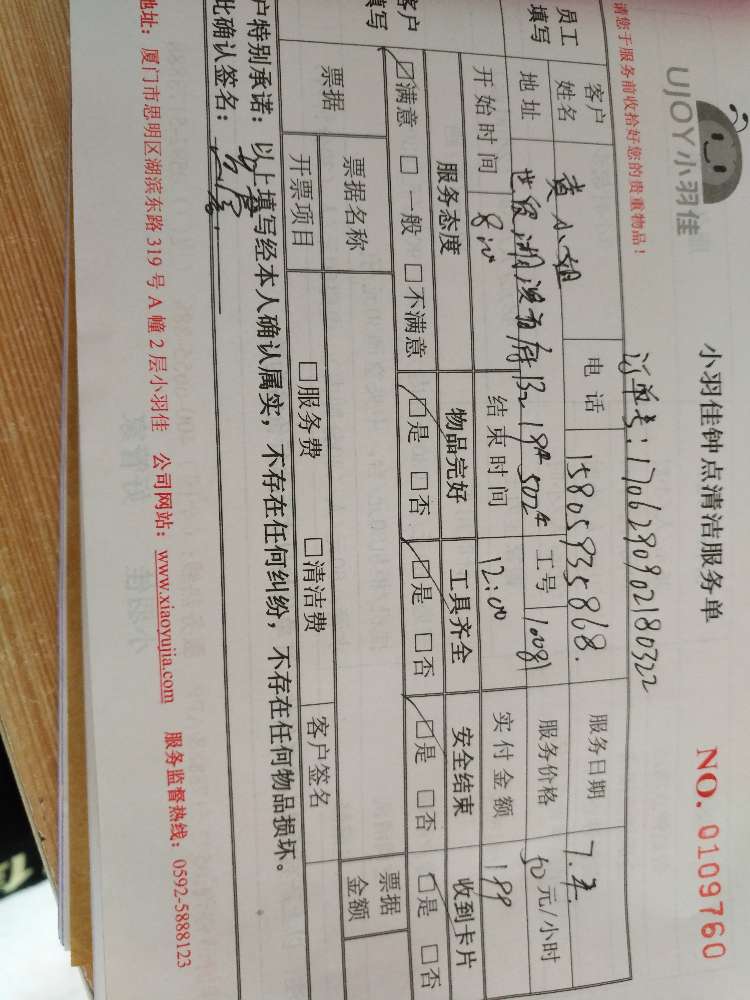 UJOY小羽佳
小羽佳钟点清洁服务单
NO. 0109760
请您于服务前收拾好您的贵重物品！
订单号：1706290902180322
员工填写
客户姓名 黄小姐 电话 15805935868. 服务日期
地址 工号 10081 服务价格 50元/小时
开始时间 8:00 结束时间 12:00 实付金额 199
客户填写
服务态度 物品完好 工具齐全 安全结束 收到卡片
☑满意 □一般 □不满意 ☑是 □否 ☑是 □否 ☑是 □否 ☑是 □否
票据
票据名称 票据金额
开票项目 □服务费 □清洁费 客户签名
户特别承诺：以上填写经本人确认属实，不存在任何纠纷，不存在任何物品损坏。
此确认签名：
地址：厦门市思明区湖滨东路319号A幢2层小羽佳 公司网站：www.xiaoyujia.com 服务监督热线：0592-5888123